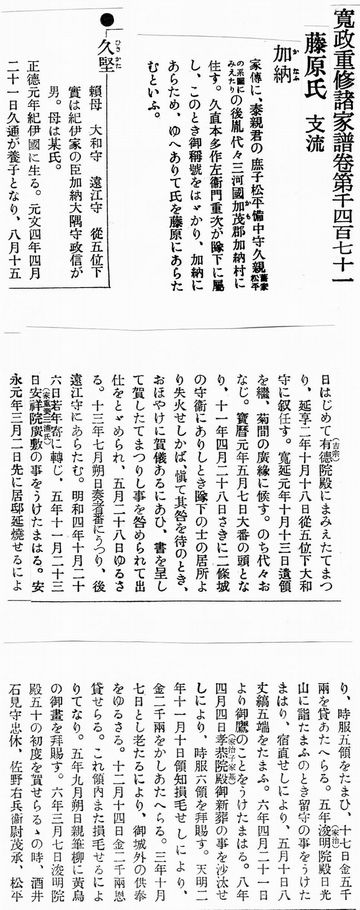 寛政重修諸家譜卷第千四百七十一
藤原氏 支流
加納
家傳に、泰親君の庶子松平備中守久親
の後胤代々三河國加茂郡加納村に
住す。久直本多作左衛門重次が隊下に屬
し、このとき御稱號をはゞかり、加納に
あらため、ゆへありて氏を藤原にあらた
むといふ。
●久堅
頼母 大和守 遠江守 從五位下
實は紀伊家の臣加納大隅守政信が
男。母は某氏。
正德元年紀伊國に生る。元文四年四月
二十一日久通が養子となり、八月十五
日はじめて有德院殿にまみえたてまつ
り、延享二年十月十八日從五位下大和
守に叙任す。寛延元年十月十三日遺領
を繼、菊間の廣緣に候す。のち代々お
なじ。寶曆元年五月七日大番の頭とな
り、十一年四月二十八日さきに二條城
の守衛にありしとき隊下の士の居所よ
り失火せしかば、愼て其咎を待のとき、
おほやけに賀儀あるにあひ、書を呈し
て賀したてまつりし事を咎められて出
仕をとゞめられ、五月二十八日ゆるさ
る。十三年七月朔日奏者番にうつり、後
遠江守にあらたむ。明和四年十月二十
六日若年寄に轉じ、五年十一月二十三
日安祥院廣敷の事をうけたまはる。安
永元年三月二日先に居邸延燒せるによ
り、時服五領をたまひ、十七日金五千
兩を貸あたへらる。五年浚明院殿日光
山に詣たまふのとき留守の事をうけた
まはり、宿直せしにより、五月十日八
丈縞五端をたまふ。六年四月二十一日
より御鷹のことをうけたまはる。八年
四月四日孝恭院殿御新葬の事を沙汰せ
しにより、時服六領を拜賜す。天明二
年十一月十日領知損毛せしにより、
金二千兩をかしあたへらる。三年十月
七日とし老たるにより、御城外の供奉
をゆるさる。十二月十四日金二千兩恩
貸せらる。これ領内また損毛せるによ
りてなり。五年九月朔日親筆柳に黃鳥
の御畫を拜賜す。六年三月七日浚明院
殿五十の初度を賀せらるゝの時、酒井
石見守忠休、佐野右兵衛尉茂承、松平